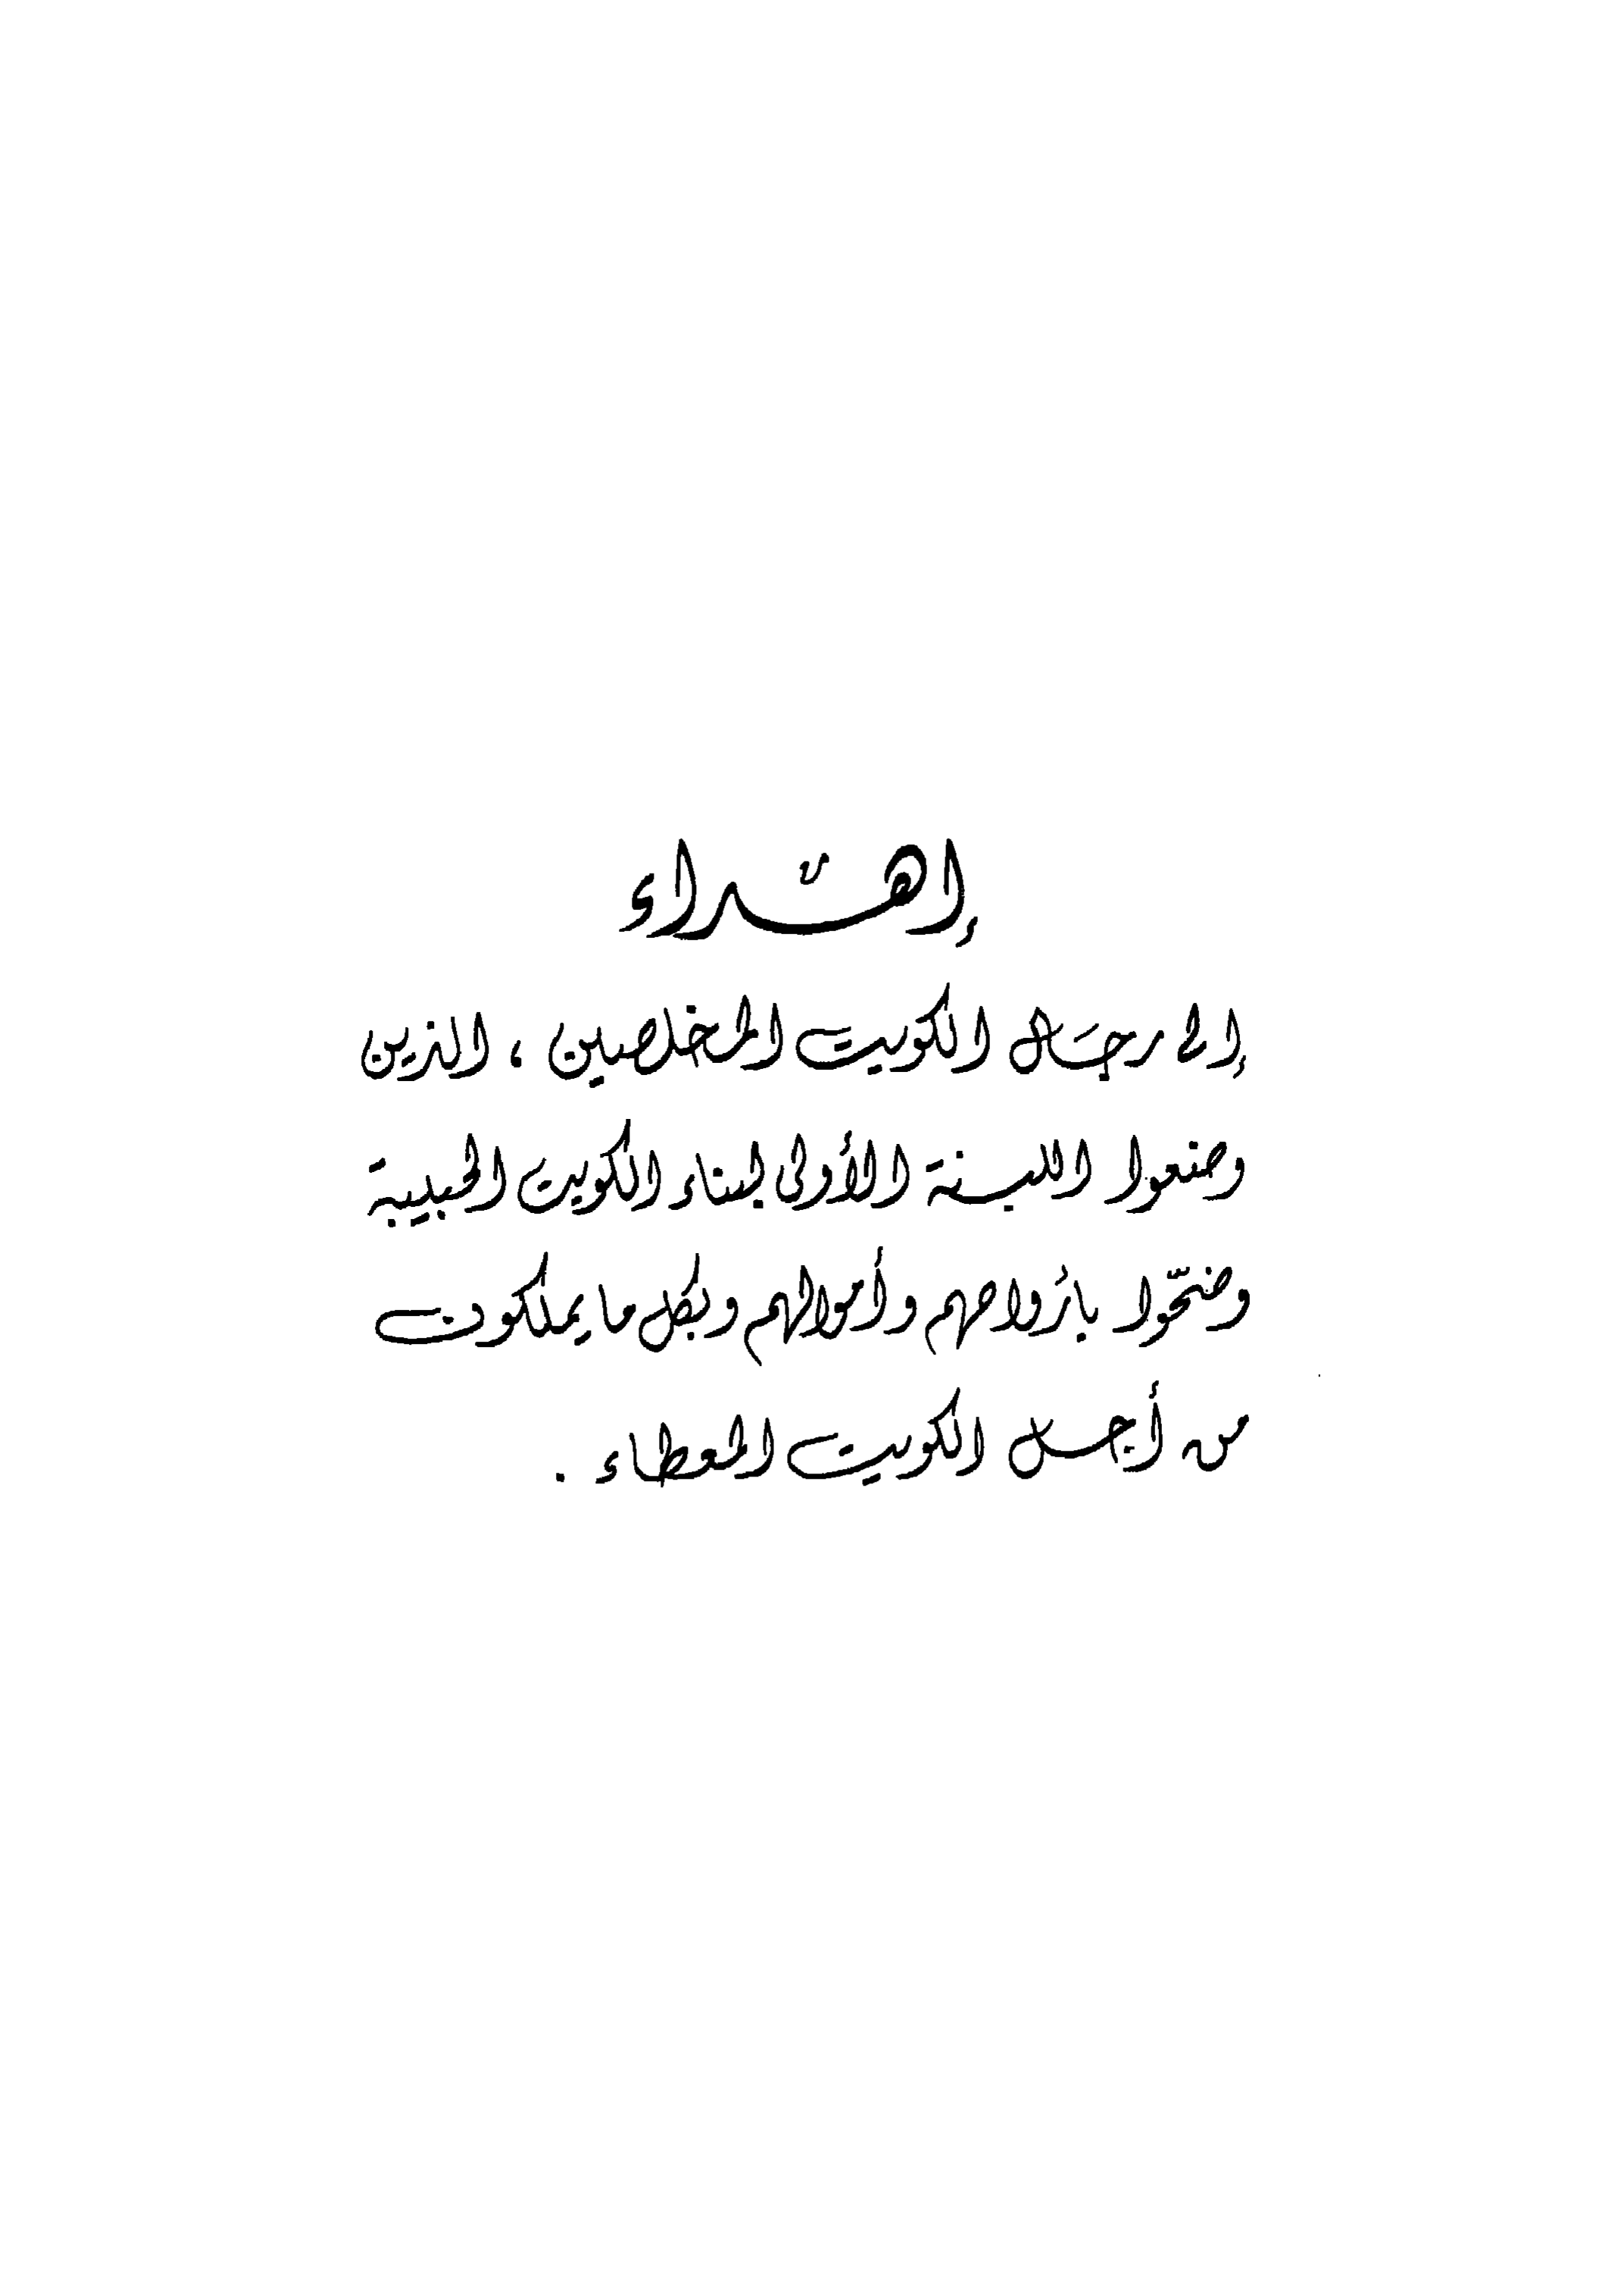 إهداء
إلى رجال الكويت المخلصين ، الذين
وضعوا اللبنة الأولى لبناء الكويت الحبيبة
وضحّوا بأرواحهم وأموالهم وبكل ما يملكون
من أجل الكويت المعطاء .